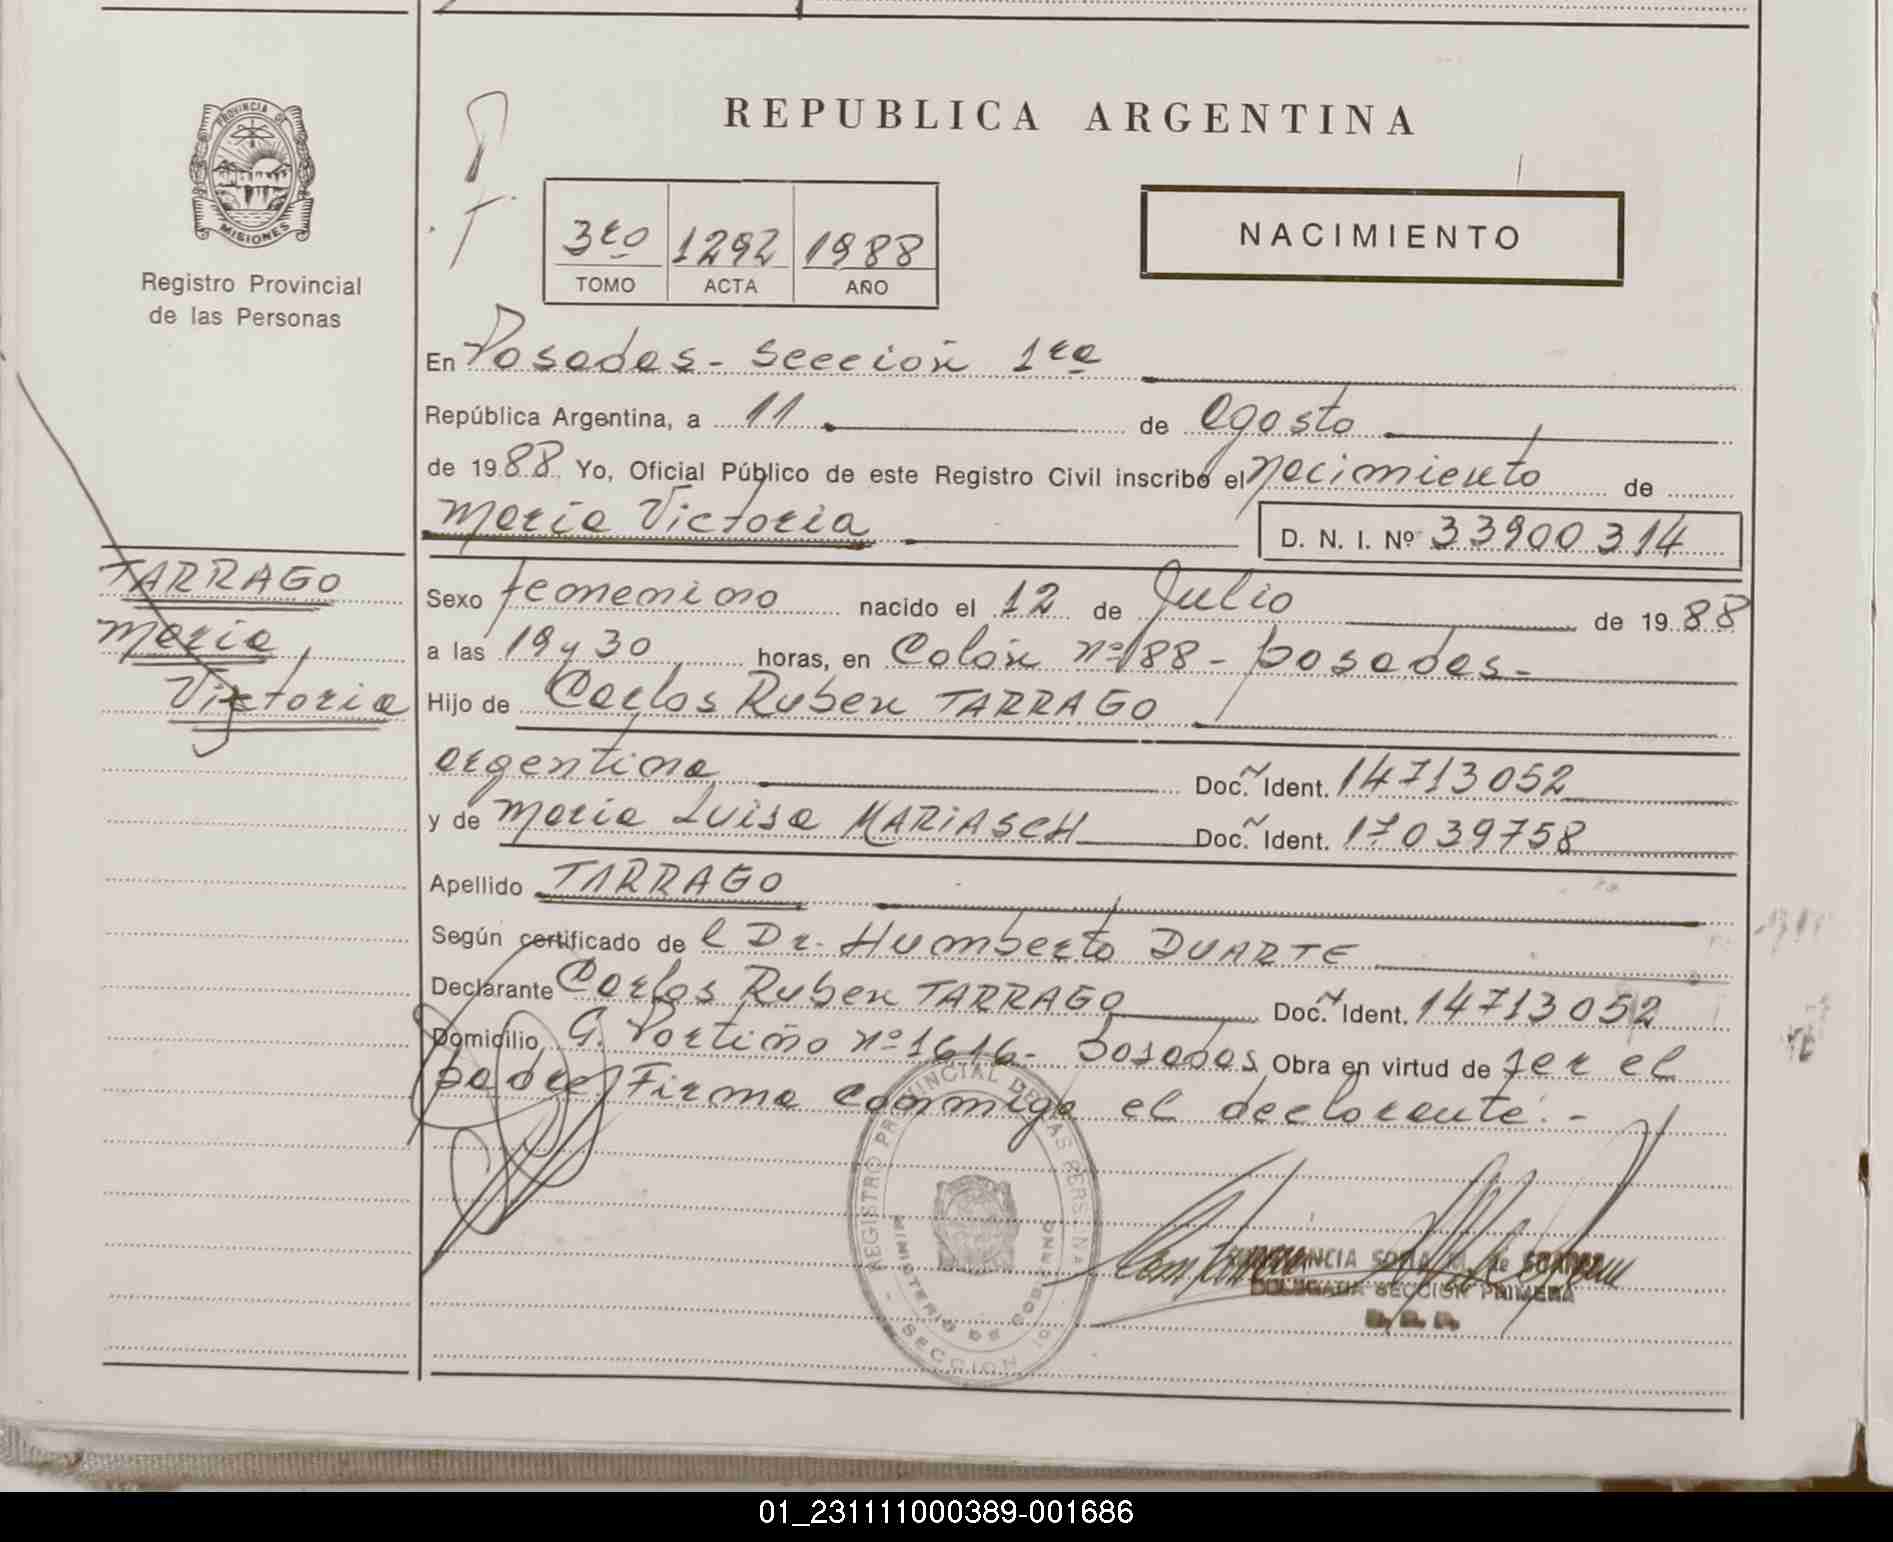 PROVINCIA DE
MISIONES
Registro Provincial
de las Personas
REPUBLICA ARGENTINA
3ro 1292 1988
TOMO ACTA AÑO
NACIMIENTO
En Posadas - Sección 1ra
República Argentina, a 11 de agosto
de 1988 Yo, Oficial Público de este Registro Civil inscribo el nacimiento de
María Victoria D. N. I. Nº 33900314
TARRAGO
María
Victoria
Sexo femenino nacido el 12 de Julio de 1988
a las 19 y 30 horas, en Colón nº 188 - posadas -
Hijo de Carlos Ruben TARRAGO
argentina Doc. Ident. 14713052
y de María Luisa MARIASCH Doc. Ident. 17039758
Apellido TARRAGO
Según certificado de l Dr. Humberto DUARTE
Declarante Carlos Ruben TARRAGO Doc. Ident. 14713052
Domicilio G. Portiño nº 1616 - posadas Obra en virtud de ser el
padre. Firma conmigo el declarante. -
REGISTRO PROVINCIAL DE LAS PERSONAS
MINISTERIO DE GOBIERNO
SECCION
DELEGADA SECCION PRIMERA
01_231111000389-001686